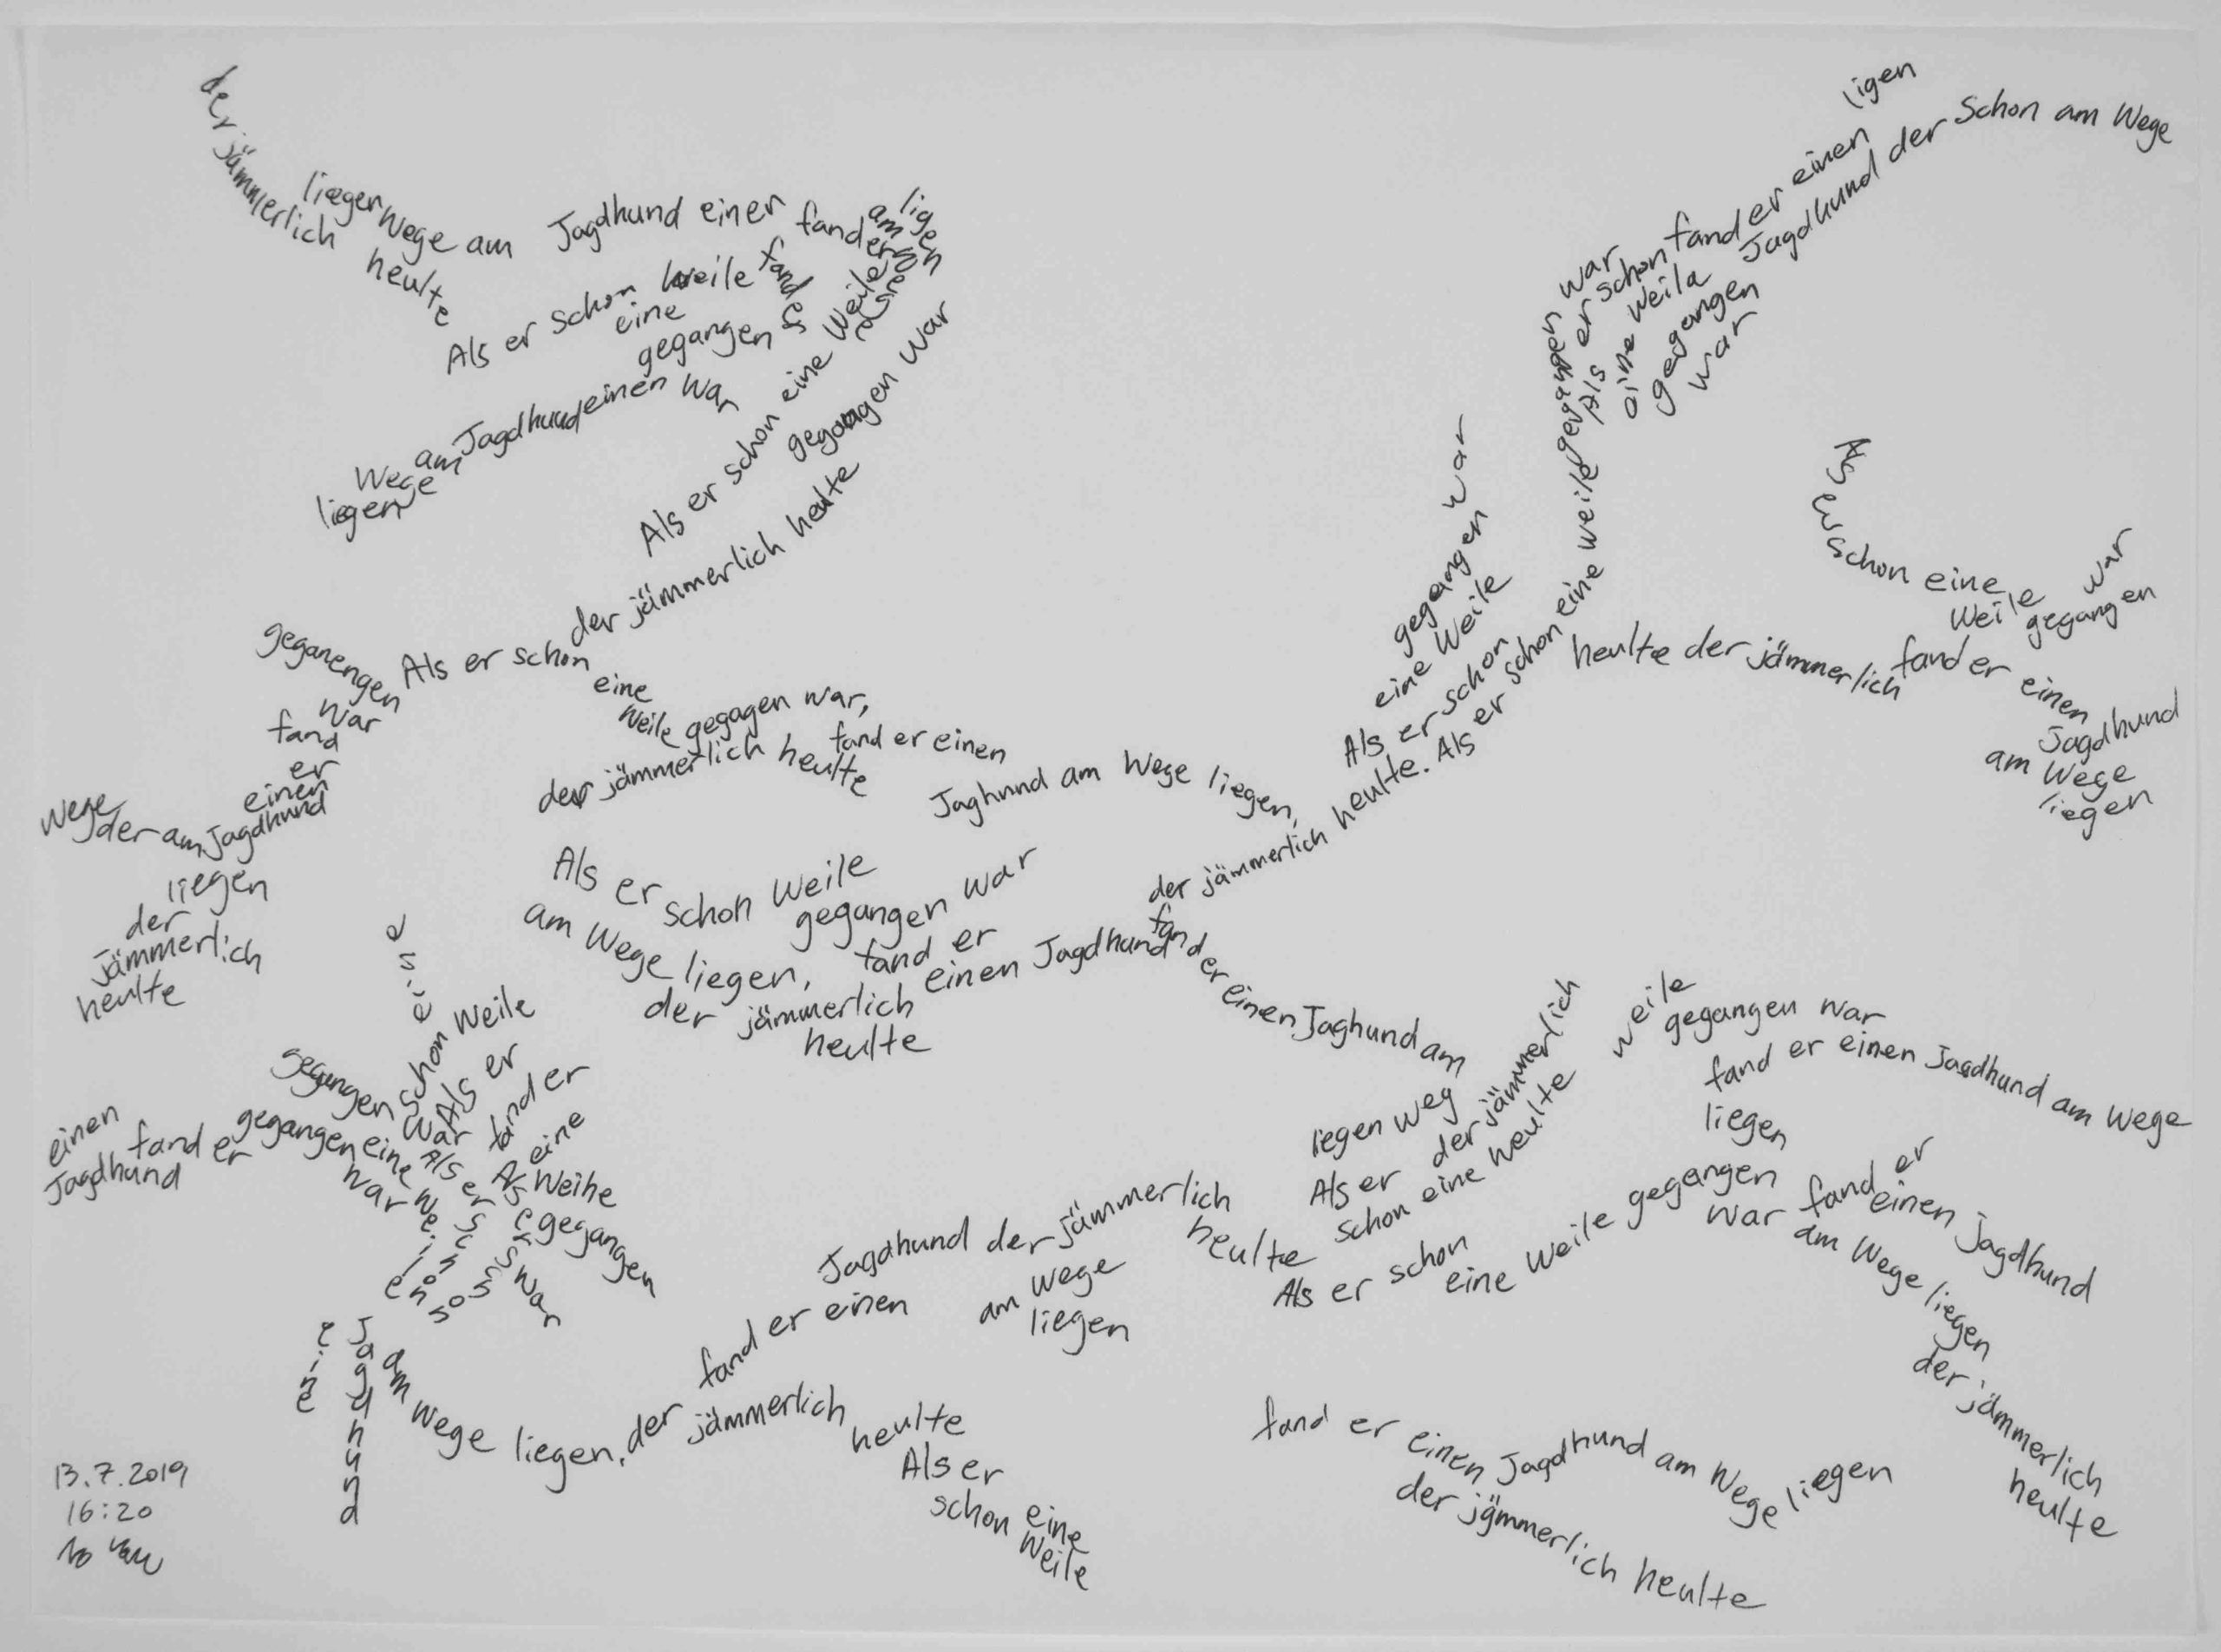 der jämmerlich heulte
liegen Wege am Jagdhund einen fander
am ligen
Wege
Als er schon Weile fander
eine
gegangen
Wege am Jagdhund einen war
liegen
Als er schon eine Weile
gegangen war
der jämmerlich heulte
geganengen
war
fand
er
einen
Wege der am Jagdhund
liegen
der
jämmerlich
heulte
Als er schon
eine
Weile gegagen war,
fand er einen
der jämmerlich heulte
Jaghund am Wege liegen,
der jämmerlich heulte. Als er schon eine weile gegangen war
Als er schon
eine Weile
gegangen war
Als er schon fand er einen ligen
eine weila
gegangen
war
Jagdhund der Schon am Wege
Als er schon eine
Weile
gegangen
war
heulte der jämmerlich fand er einen
Jagdhund
am Wege
liegen
Als er schon Weile
gegangen war
am Wege liegen, fand er
einen Jagdhund
der jämmerlich
heulte
fand er einen Jaghund am
liegen weg
Als er der jämmerlich
schon eine heulte
weile
gegangen war
fand er einen Jagdhund am Wege
liegen
eine
schon Weile
Als er
gegangen war
fander
einen
Jagdhund
fand er
gegangen
war
eine Weile
Als er schon
Als er
eine
Weihe
gegangen
war
eine
Jagdhund
am Wege liegen, der jämmerlich heulte
fand er einen
Jagdhund der jämmerlich
heulte
am Wege
liegen
Als er
schon eine
Weile
Als er schon
eine Weile gegangen
war fand er
einen Jagdhund
am Wege liegen
der jämmerlich
heulte
fand er einen Jagdhund am Wege liegen
der jämmerlich heulte
13.7.2019
16:20